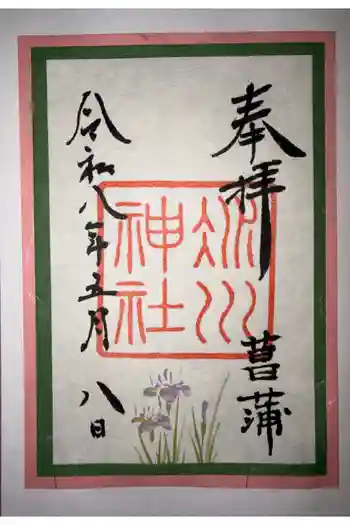 奉拝
菖蒲
冰川
神社
令和八年五月八日